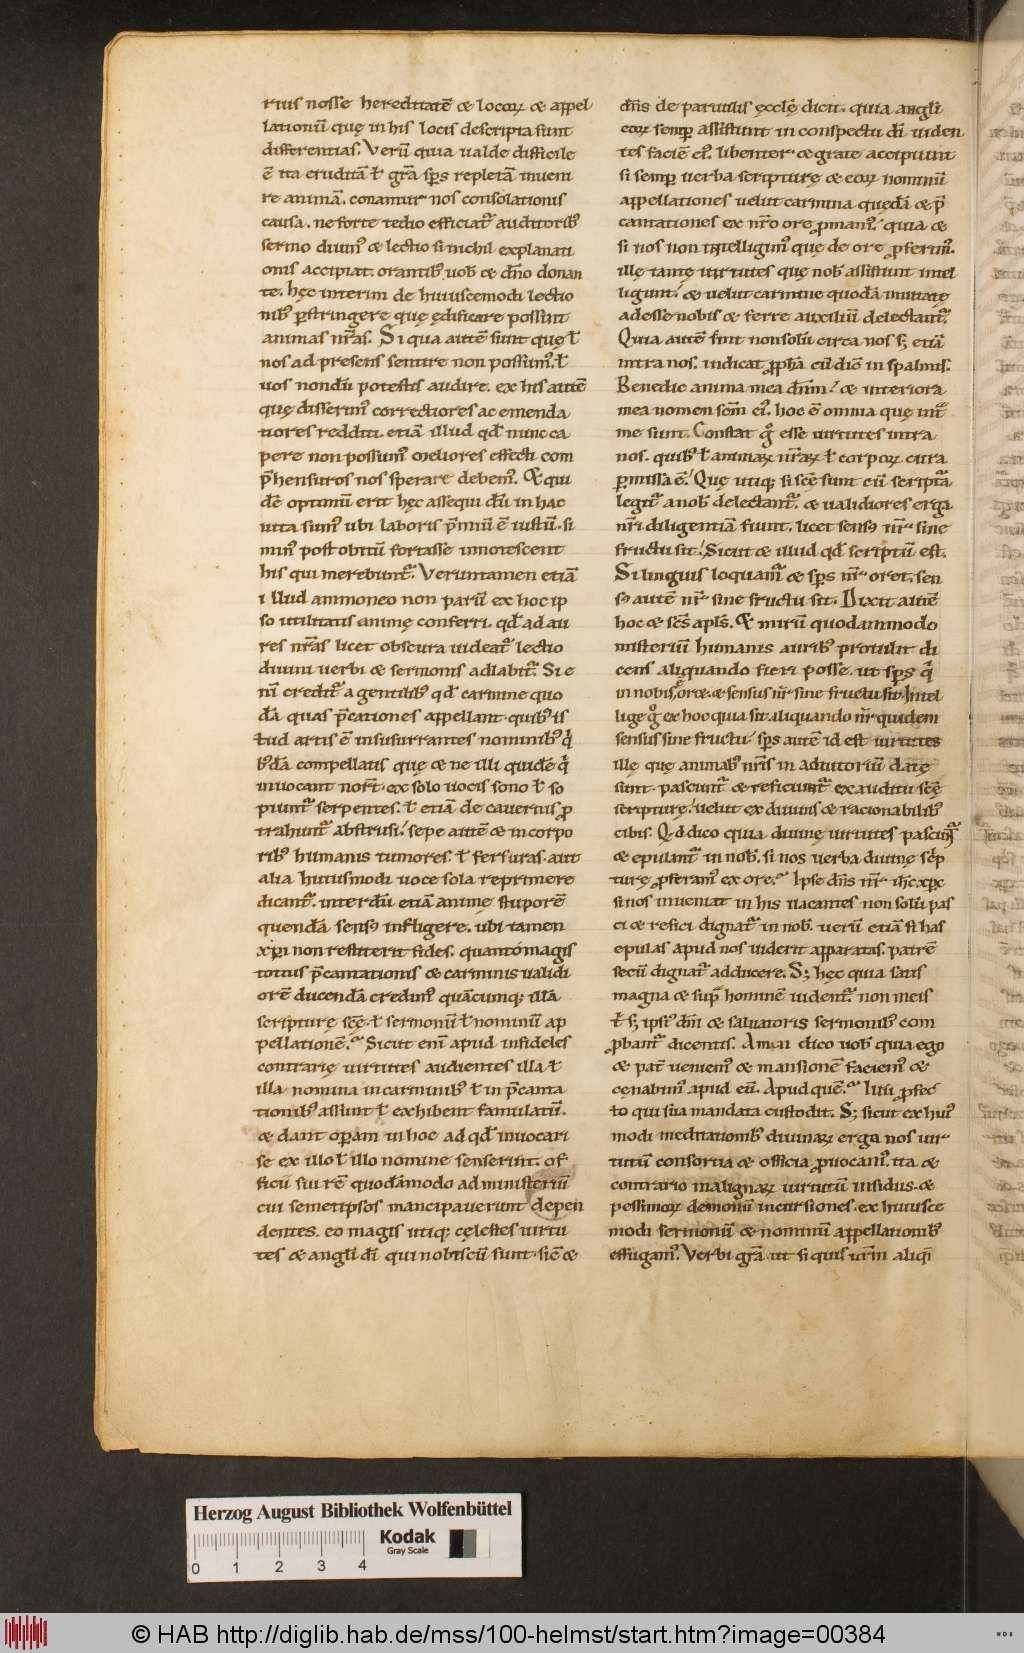 rius nosse hereditatē & locoꝝ & appel
lationū quę in his locis descripta sunt
differentias. Verū quia ualde difficile
ē ita eruditā ł grā sp̄s repletā inueni
re animā. conamur nos consolationis
causa. ne forte tedio efficiat᷑ auditorib᷒
sermo diuin᷒ & lectio si nichil explanati
onis accipiat. orantib᷒ uob̄ & dn̄o donan
te. hęc interim de huiuscemodi lectio
nib᷒ ꝑstringere quę ędificare possint
animas nr̄as. Si qua autē sunt quę ł
nos ad presens sentire non possum᷒. ł
uos nondū potestis audire. ex his autē
quę disserim᷒ correctiores ac emenda
tiores redditi. etiā illud qd̄ nunc ca
pere non possum᷒ meliores effecti com
p̄hensuros nos sperare debem᷒. Et qui
dē optimū erit hęc assequi dū in hac
uita sum᷒ ubi laboris p̄miū ē iustū. si
min᷒ post obitū fortasse innotescent
his qui merebunt᷑. Veruntamen etiā
illud ammoneo non parū ex hoc ip
so utilitatis animę conferri. qd̄ ad au
res nr̄as licet obscura uideat᷑ lectio
diuini uerbi & sermonis adlabit᷑. Si e
nī credit᷑ a gentilib᷒ qd̄ carmine quo
dā quas p̄cationes appellant. quib᷒ is
tud artis ē insusurrantes nominib᷒ q̄
b᷒dā compellatis quę & ne illi quidē q̄
inuocant nor̄t. ex solo uocis sono ł so
piunt᷑ serpentes. ł etiā de cauernis ꝓ
trahunt᷑ abstrusi. sepe autē & in corpo
rib᷒ humanis tumores. ł feruras. aut
alia huiusmodi uoce sola reprimere
dicant᷑. interdū etiā animę stuporē
quendā sens᷒ infligere. ubi tamen
xp̄i non restiterit fides. quanto magis
totius p̄cantationis & carminis ualidi
orē ducendā credim᷒ quācunq; illā
scripturę sc̄ę ł sermonū ł nominū ap
pellationē. Sicut enī apud infideles
contrarię uirtutes audientes illa ł
illa nomina in carminib᷒ ł in p̄canta
tionib᷒ assunt ł exhibent famulatū.
& dant oꝑam in hoc ad qd̄ inuocari
se ex illo ł illo nomine senserint. of
ficii sui rē quodāmodo ad ministeriū
cui semetipsos mancipauerunt depen
dentes. eo magis utiq; cęlestes uirtu
tes & angli dī qui nobiscū sunt. sic̄ &
dn̄s de paruulis ęcclę dicit. quia angli
eoꝝ semꝑ assistunt in conspectu dī uiden
tes faciē ei᷒. libenter & grate accipiunt
si semꝑ uerba scripturę & eoꝝ nominū
appellationes uelut carmina quędā & p̄
cantationes ex nr̄o ore ꝓmant᷑. quia &
si nos non intelligim᷒ quę de ore ꝓferim᷒.
illę tamę uirtutes quę nob̄ assistunt intel
ligunt. & uelut carmine quodā inuitatę
adesse nobis & ferre auxiliū delectant᷑.
Quia autē sint non solū circa nos s; etiā
intra nos. indicat ꝓph̄a cū dic̄ in psalmis.
Benedic anima mea dn̄m. & interiora
mea nomen scm̄ ei᷒. hoc ē omnia quę int̄
me sunt. Constat g° esse uirtutes intra
nos. quib᷒ ł animaꝝ nr̄aꝝ ł corpoꝝ cura
ꝑmissa ē. Quę utiq; si sc̄ę sunt cū scriptā
legit᷑ a nob̄ delectant᷑. & ualidiores erga
nr̄i diligentiā fiunt. licet sens᷒ nr̄ sine
fructu sit. Sicut & illud qd̄ scriptū est.
Si linguis loquam᷑ & sp̄s nr̄ oret. sen
s᷒ autē nr̄ sine fructu sit. Dixit autē
hoc & sc̄s apls̄. Et mirū quodammodo
misteriū humanis aurib᷒ protulit di
cens aliquando fieri posse. ut sp̄s q̄
in nobis ē oret. & sensus nr̄ sine fructu sit. Intel
lige g° ex hoc quia sit aliquando nr̄ quidem
sensus sine fructu. sp̄s autē id est uirtutes
illę quę animab᷒ nr̄is in adiutoriū datę
sunt. pascunt᷑ & reficiunt᷑ ex auditu sc̄ę
scripturę. uelut ex diuinis & racionabilib᷒
cibis. Qd dico quia diuinę uirtutes pascunt᷑
& epulant᷑ in nob̄. si nos uerba diuinę sc̄p
turę ꝓferam᷒ ex ore. Ipse dn̄s nr̄ ih̄c xp̄c
si nos inueniat in his uacantes non solū pas
ci & refici dignat᷑ in nob̄. uerū etiā si has
epulas apud nos uiderit apparatas. patrē
secū dignat᷑ adducere. S; hęc quia satis
magna & sup̄ hominē uident᷑. non meis
ł s; ipsi᷒ dn̄i & saluatoris sermonib᷒ com
ꝓbant᷑ dicentis. Amen dico uob̄ quia ego
& pat̄ ueniem᷒ & mansionē faciem᷒ &
cęnabim᷒ apud eū. Apud quē. Illū ꝓfec
to qui sua mandata custodit. S; sicut ex hui᷒
modi meditationib᷒ diuinaꝝ erga nos uir
tutū consortia & officia ꝓuocam᷒. ita &
contrario malignaꝝ uirtutū insidias. &
pessimoꝝ demonū incursiones. ex huiusce
modi sermonū & nominū appellationib᷒
effugam᷒. Verbi grā. ut si quis ur̄m aliq̄
Herzog August Bibliothek Wolfenbüttel
Kodak
Gray Scale
0 1 2 3 4
© HAB http://diglib.hab.de/mss/100-helmst/start.htm?image=00384